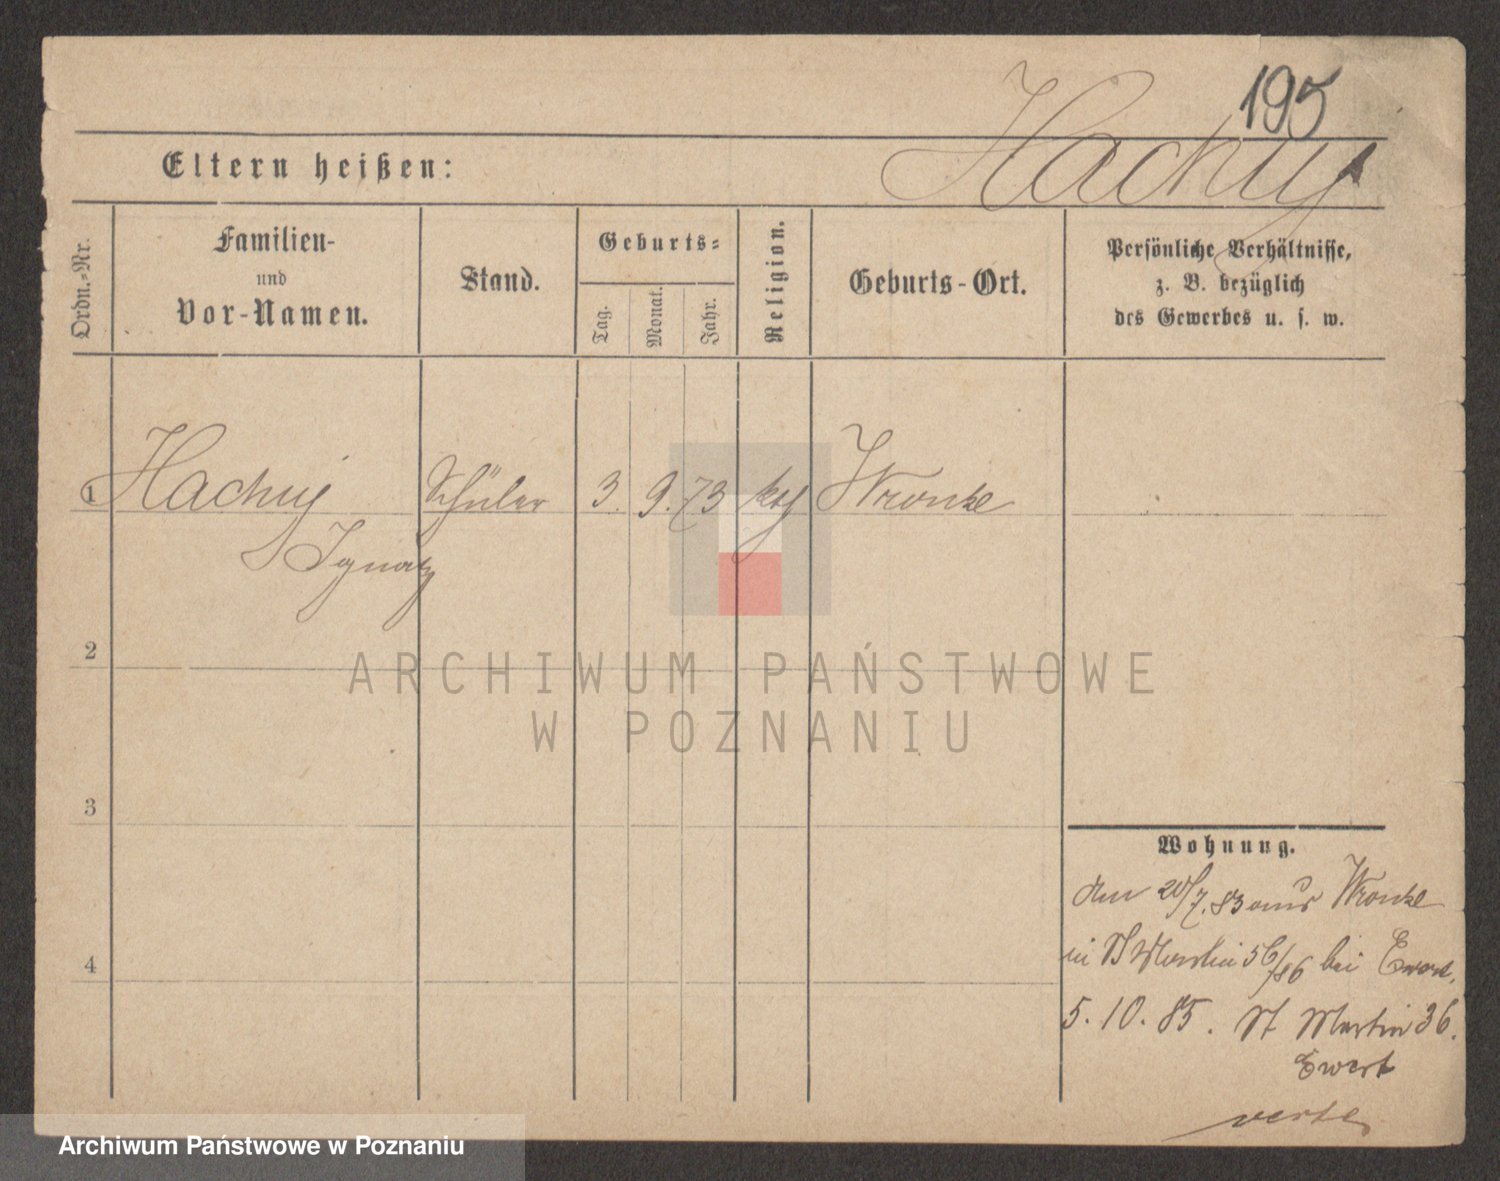 195
Hachuj
Eltern heißen:
Ordn.-Nr.
Familien-
und
Vor-Namen.
Stand.
Geburts-
Tag.
Monat.
Jahr.
Religion.
Geburts-Ort.
Persönliche Verhältnisse,
z. B. bezüglich
des Gewerbes u. s. w.
1 Hachuj Schüler 3. 9. 73 kth Wronke
Ignatz
2
3
4
Wohnung.
Am 20/7. 83 aus Wronke
in St Martin 56/86 bei Ewert.
5. 10. 85. St Martin 36.
Ewert
verte
ARCHIWUM PAŃSTWOWE
W POZNANIU
Archiwum Państwowe w Poznaniu